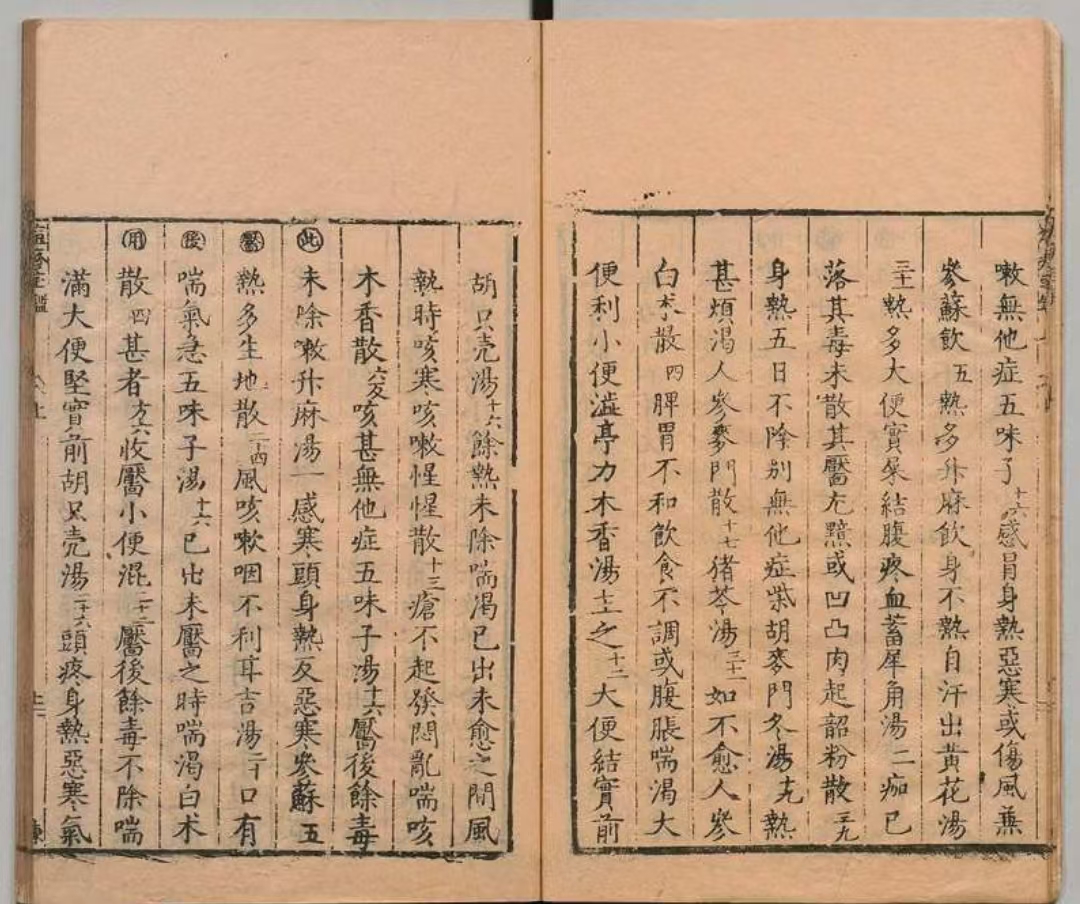 嗽無他症五味子十六感冒身熱惡寒或傷風無
參蘇飲五熱多升麻飲身不熱自汗出黃花湯
三十熱多大便實糞結腹疼血蓄犀角湯二痂已
落其毒未散其靨尤黯或凹凸肉起韶粉散三九
身熱五日不除別無他症柴胡麥門冬湯 熱
甚煩渴人參麥門散十七猪苓湯三十一如不愈人參
白朮散四脾胃不和飲食不調或腹脹喘渴大
便利小便澁亭力木香湯 之十二大便結實前
胡只壳湯十六餘熱未除喘渴已出未愈之間風
執時咳寒咳嗽惺惺散十三瘡不起發悶亂喘咳
木香散 咳甚無他症五味子湯十六靨後餘毒
此 未除嗽升麻湯一感寒頭身熱反惡寒參蘇五
熱多生地散二十四風咳嗽咽不利耳吉湯二十口有
喘氣急五味子湯十六已出未靨之時喘渴白术
用 散四甚者 收靨小便混二十三靨後餘毒不除喘
滿大便堅實前胡只壳湯二十六頭疼身熱惡寒氣